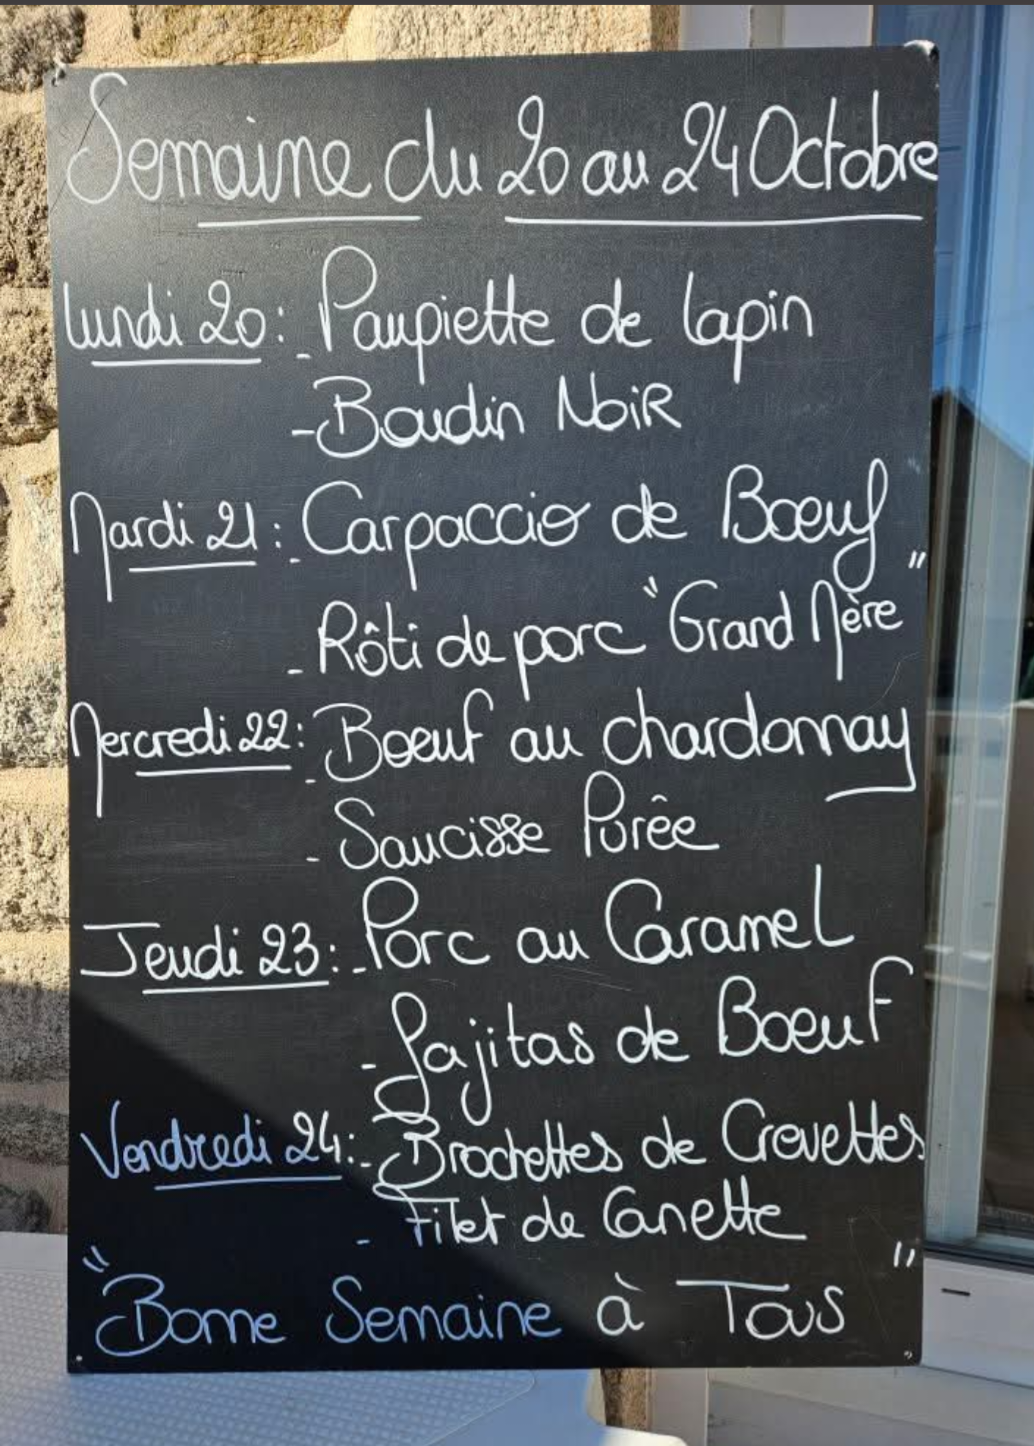 Semaine du 20 au 24 Octobre
Lundi 20: - Paupiette de lapin
- Boudin Noir
Mardi 21: - Carpaccio de Bœuf
- Rôti de porc "Grand Mère"
Mercredi 22: - Bœuf au chardonnay
- Saucisse Purêe
Jeudi 23: - Porc au Caramel
- Fajitas de Bœuf
Vendredi 24: - Brochettes de Crevettes
- Filet de Canette
"Bonne Semaine à Tous"